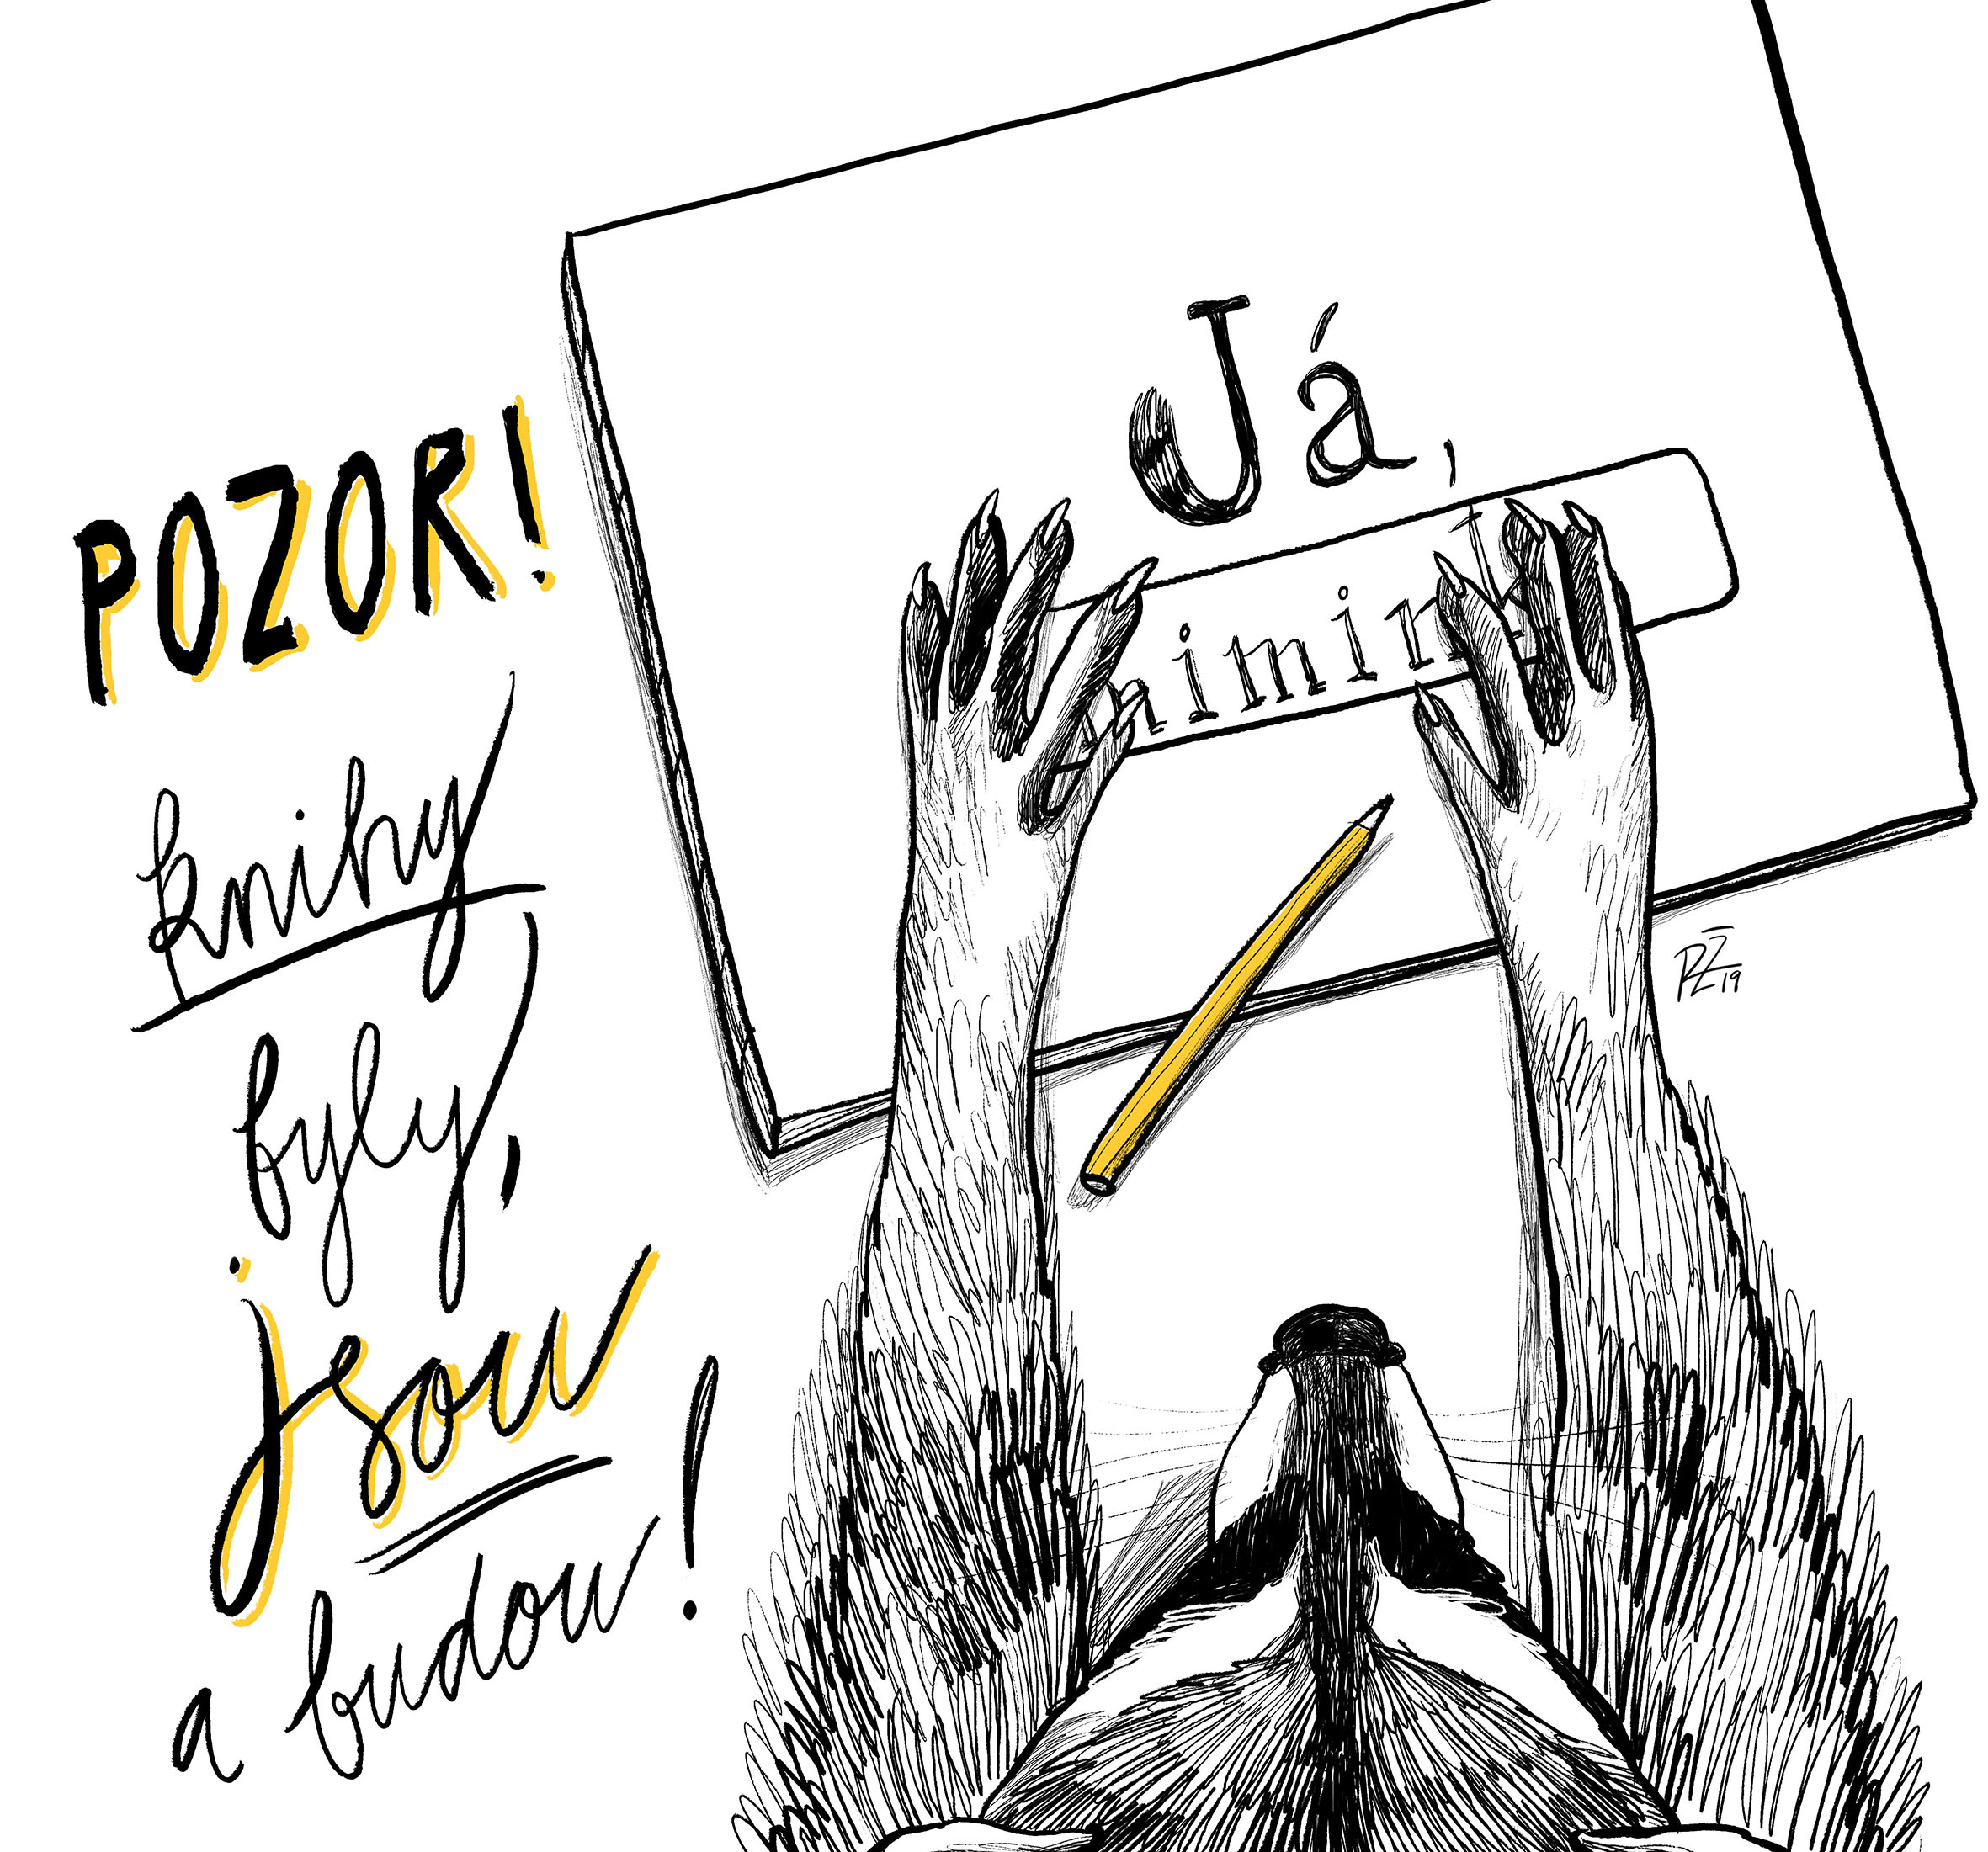 POZOR!
knihy
byly,
jsou
a budou!
Já,
PŽ
19